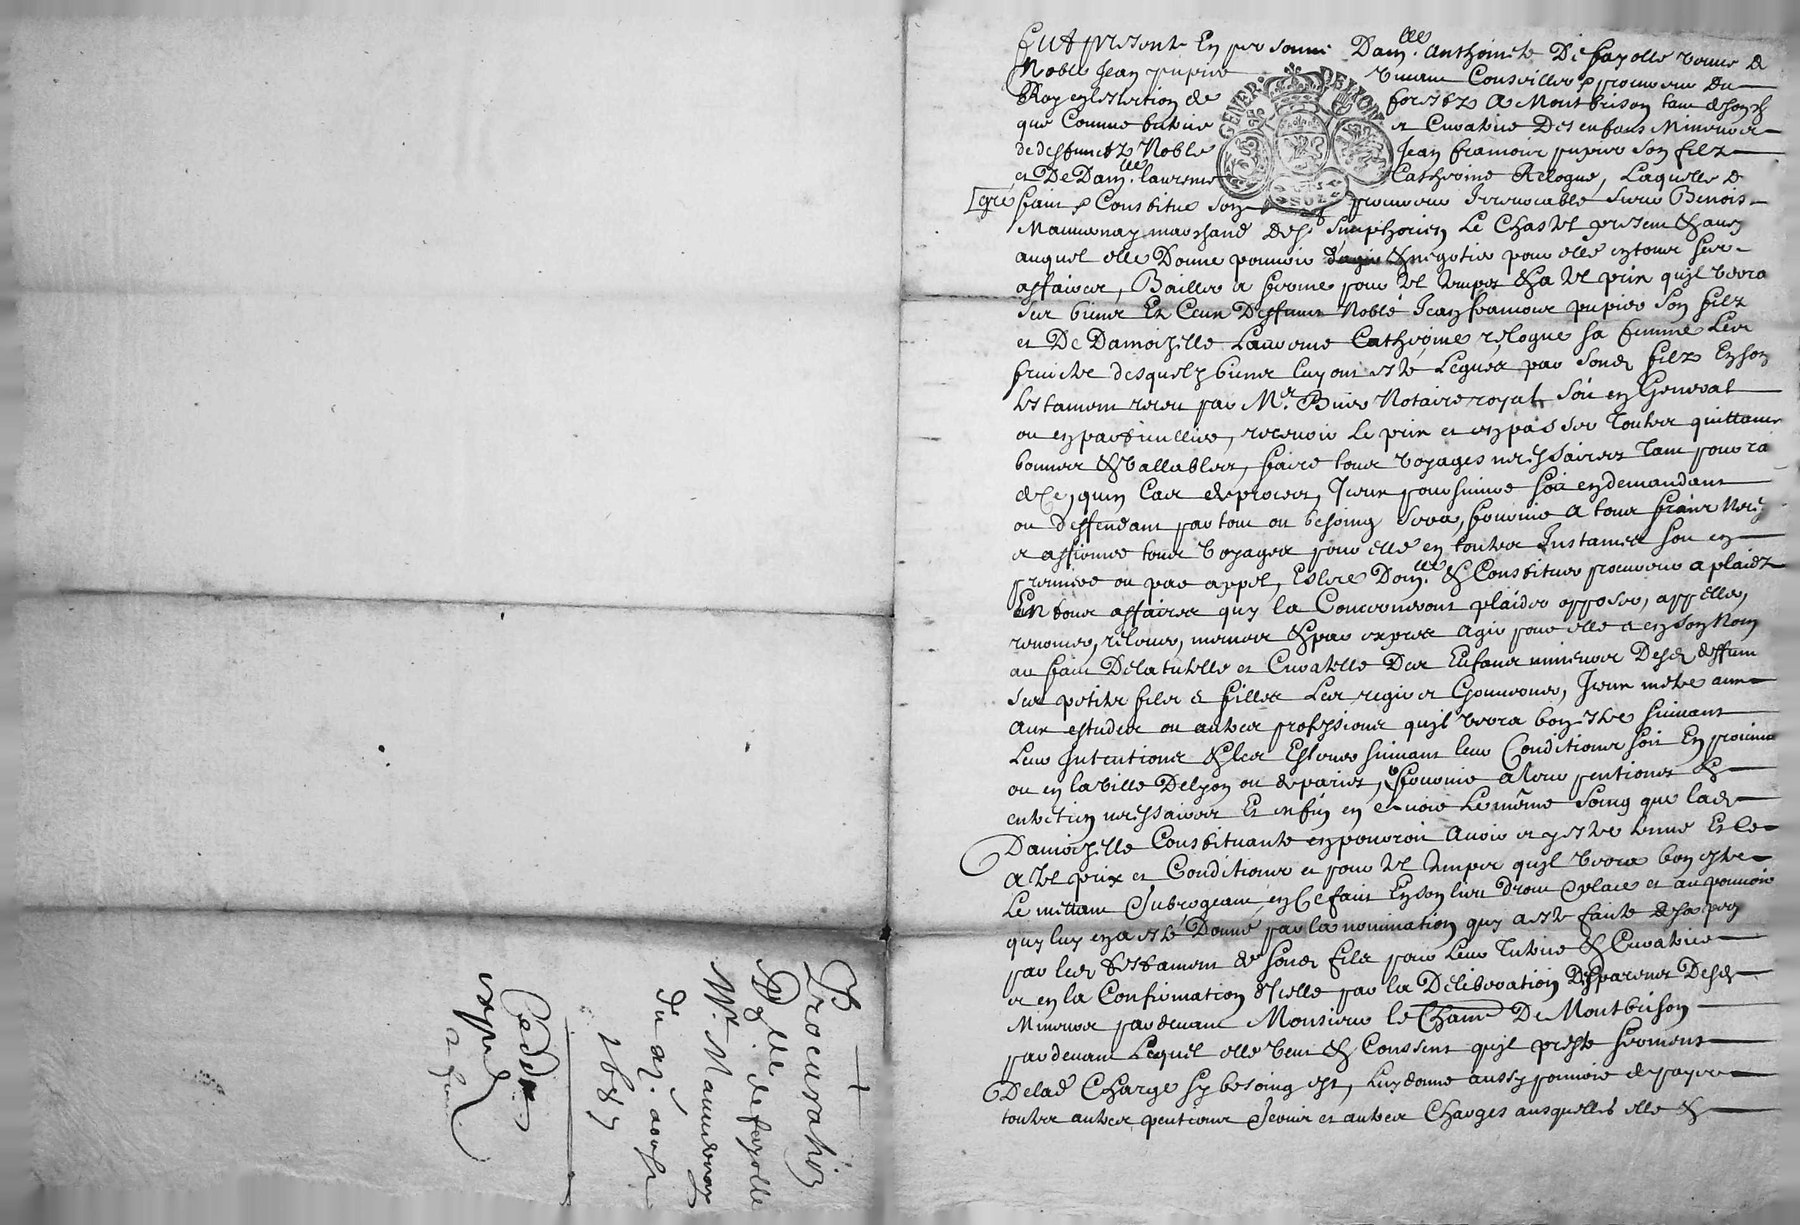 Fut presente En personne Dam.lle Anthoinete De fayolle vefve de
Noble Jean pupier vivant Conseiller & procureur du
Roy en leslection de forestz A Montbrison tant de son chef
que Comme tutrice et Curatrice Des enfans Mineurs
de deffunctz Noble Jean francois pupier son filz
et De Dam.lle laurence Catherine Relogue, Laquelle de
gré faict & Constitue son procureur Irrevocable sieur Benoist
Mauvernay marchand de St Simphorien Le Chastel present &
auquel elle Donne pouvoir & negotier pour elle en tous ses
affaires, Bailler a ferme pour tel temps & a tel prix quil verra
les biens Et Ceux Deffunct Noble Jean francois pupier son filz
et De Damoizelle Laurence Catherine relogue sa femme Les
fruictz desquelz biens luy ont esté Leguez par sond. filz En son
testament receu par Me. Notaire royal, soit en General
ou en particullier, recevoir Le prix et en passer toutes quittances
bonnes & vallables, faire tous voyages necessaires tant pour
qu'en Cas de proces, Iceux poursuivre soit en demandant
ou deffendant par tout ou besoing sera, fournir a tous fraix
et affirmer tous voyages pour elle en toutes Instances soit en
premiere ou par appel, Eslire Dom.lle & Constituer procureur a plaidz
En tous affaires quy la Concerneront plaider opposer, appeller,
renoncer, & par expres agir pour elle et en son Nom
au faict De la tutelle et Curatelle Des Enfans mineurs Desd. deffunctz
ses petitz filz et filles Les regir et Gouverner, Iceux mettre
Aux estudes ou autres professions quil verra bon estre suivant
Leurs Intentions & les Eslever suivant leur Conditions soit En province
ou en la ville De lyon ou de paris, fournir a leurs pentions &
entretien necessaires Et enfin en avoir Le mesme soing que lad.
Damoizelle Constituante en pourroit avoir et
A tel prix et Conditions et pour tel temps quil verra bon estre
Le mettant & subrogeant en Ce faict En son lieu droit & place et au pouvoir
quy luy en a esté Donné par la nomination quy a esté faicte de sa personne
par led. testament de sond. filz pour Leur Tutrice & Curatrice
et en la Confirmation d'Icelle par la Deliberation Des parens Desd.
Mineurs pardevant Monsieur le De Montbrison
pardevant Lequel elle veut & Consent quil preste serment
De lad. Charge sy besoing est, Luy donne aussy pouvoir de payer
toutes autres pentions et autres Charges ausquelles elle &
Procuration
D.lle de fayolle
Mr. Mauvernay
du aoust
1687
expedié